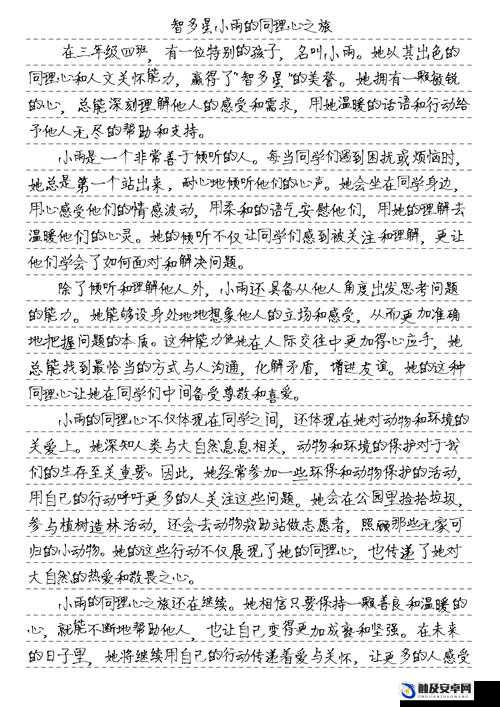 智多星小雨的同理心之旅
在三年级四班，有一位特别的孩子，名叫小雨。她以其出色的
同理心和人文关怀能力，赢得了“智多星”的美誉。她拥有一颗敏锐
的心，总能深刻理解他人的感受和需求，用她温暖的话语和行动给
予他人无尽的帮助和支持。
小雨是一个非常善于倾听的人。每当同学们遇到困扰或烦恼时，
她总是第一个站出来，耐心地倾听他们的心声。她会坐在同学身边，
用心感受他们的情感波动，用柔和的语气安慰他们，用她的理解去
温暖他们的心灵。她的倾听不仅让同学们感到被关注和理解，更让
他们学会了如何面对和解决问题。
除了倾听和理解他人外，小雨还具备从他人角度出发思考问题
的能力。她能够设身处地地想象他人的立场和感受，从而更加准确
地把握问题的本质。这种能力使她在人际交往中更加得心应手，她
总能找到最恰当的方式与人沟通，化解矛盾，增进友谊。她的这种
同理心让她在同学们中间备受尊敬和喜爱。
小雨的同理心不仅体现在同学之间，还体现在她对动物和环境的
关爱上。她深知人类与大自然息息相关，动物和环境的保护对于我
们的生存至关重要。因此，她经常参加一些环保和动物保护的活动，
用自己的行动呼吁更多的人关注这些问题。她会在公园里捡拾垃圾，
参与植树造林活动，还会去动物救助站做志愿者，照顾那些无家可
归的小动物。她的这些行动不仅展现了她的同理心，也传递了她对
大自然的热爱和敬畏之心。
小雨的同理心之旅还在继续。她相信只要保持一颗善良和温暖的
心，就能不断地帮助他人，也让自己变得更加成熟和坚强。在未来
的日子里，她将继续用自己的行动传递着爱与关怀，让更多的人感受
触及安卓网